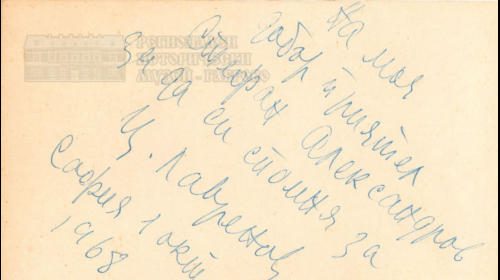 РЕГИОНАЛЕН
ИСТОРИЧЕСКИ
МУЗЕЙ - ГАБРОВО
На моя
добър приятел
Стефан Александров
за да си спомня за
Ц. Лавренов
София 1 окт
1968